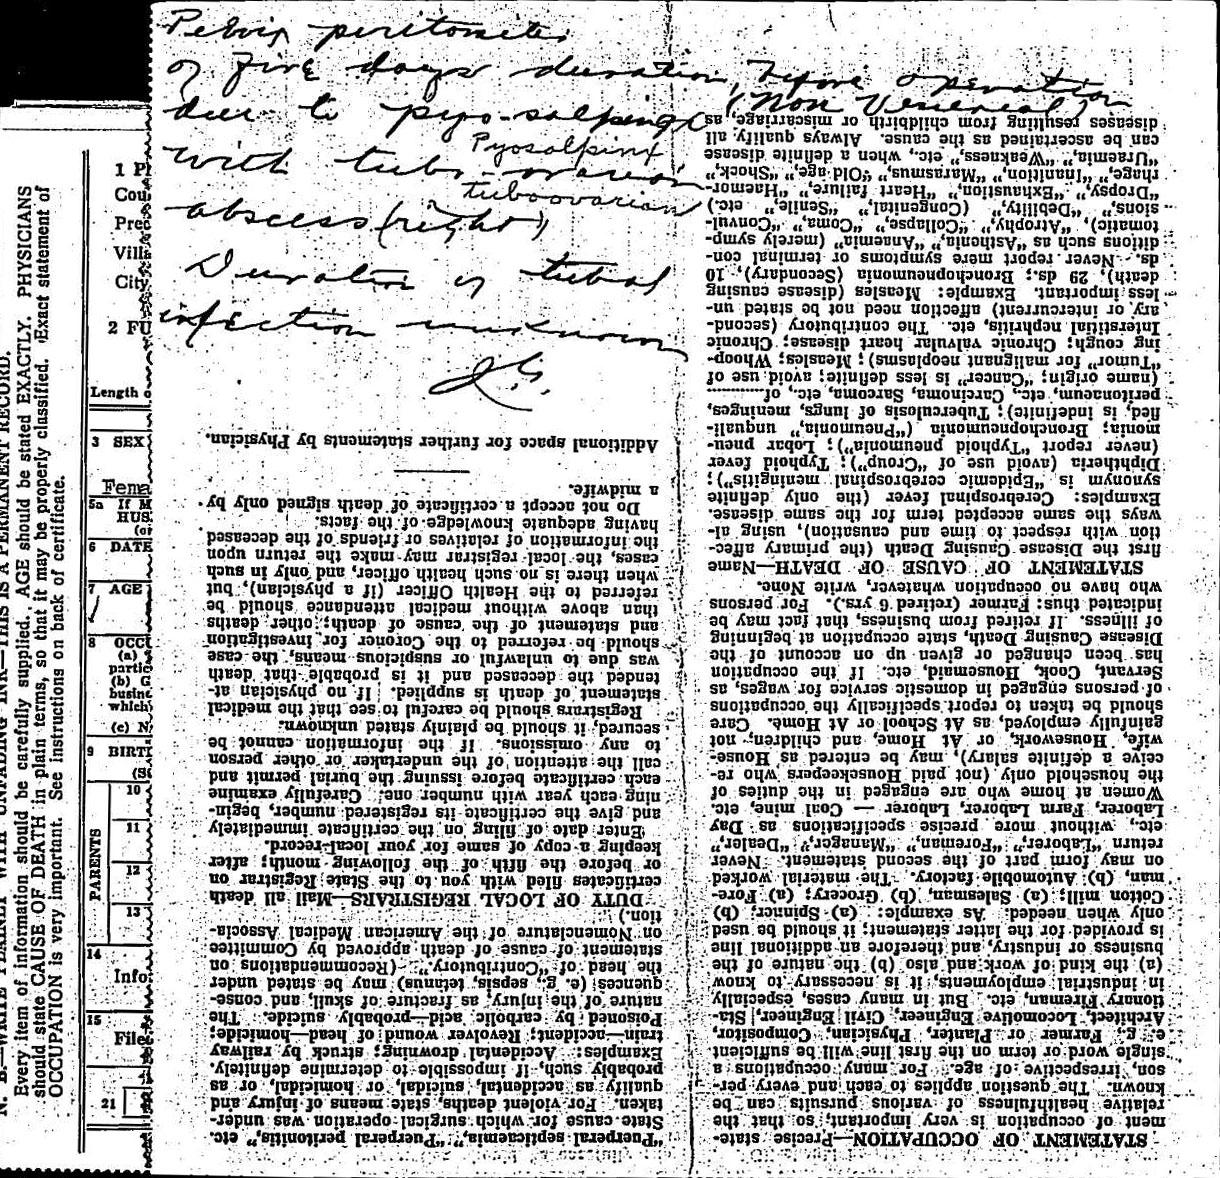 N. B.—WRITE PLAINLY WITH UNFADING INK—THIS IS A PERMANENT RECORD.
Every item of information should be carefully supplied. AGE should be stated EXACTLY. PHYSICIANS
should state CAUSE OF DEATH in plain terms, so that it may be properly classified. Exact statement of
OCCUPATION is very important. See instructions on back of certificate.
1 Pl
Cou
Prec
Villa
City
2 FU
Length o
3 SEX
Fema
5a If M
HUS
(or
6 DATE
7 AGE
8 OCC
(a)
partic
(b) G
busine
which
(c) N
9 BIRT
(S
PARENTS
10
11
12
13
14
Info
15
File
21
Pelvix peritonitis
of five days duration, before operation
due to pyo-salpingx (Non Venereal)
Pyosalpinx
with tubo-ovarion
tuboovarian
abscess (right)
Duration of tubal
infection unknown
J.G.
STATEMENT OF OCCUPATION—Precise state-
ment of occupation is very important, so that the
relative healthfulness of various pursuits can be
known. The question applies to each and every per-
son, irrespective of age. For many occupations a
single word or term on the first line will be sufficient
e. g., Farmer or Planter, Physician, Compositor,
Architect, Locomotive Engineer, Civil Engineer, Sta-
tionary Fireman, etc. But in many cases, especially
in industrial employments, it is necessary to know
(a) the kind of work and also (b) the nature of the
business or industry, and therefore an additional line
is provided for the latter statement; it should be used
only when needed. As example: (a) Spinner, (b)
Cotton mill; (a) Salesman, (b) Grocery; (a) Fore-
man, (b) Automobile factory. The material worked
on may form part of the second statement. Never
return "Laborer," "Foreman," "Manager," "Dealer,"
etc., without more precise specifications as Day
Laborer, Farm Laborer, Laborer — Coal mine, etc.
Women at home who are engaged in the duties of
the household only (not paid Housekeepers who re-
ceive a definite salary), may be entered as House-
wife, Housework, or At Home, and children, not
gainfully employed, as At School or At Home. Care
should be taken to report specifically the occupations
of persons engaged in domestic service for wages, as
Servant, Cook, Housemaid, etc. If the occupation
has been changed or given up on account of the
Disease Causing Death, state occupation at beginning
of illness. If retired from business, that fact may be
indicated thus: Farmer (retired 6 yrs.). For persons
who have no occupation whatever, write None.
STATEMENT OF CAUSE OF DEATH—Name
first the Disease Causing Death (the primary affec-
tion with respect to time and causation), using al-
ways the same accepted term for the same disease.
Examples: Cerebrospinal fever (the only definite
synonym is "Epidemic cerebrospinal meningitis");
Diphtheria (avoid use of "Croup"); Typhoid fever
(never report "Typhoid pneumonia"); Lobar pneu-
monia; Bronchopneumonia ("Pneumonia," unquali-
fied, is indefinite); Tuberculosis of lungs, meninges,
peritonaeum, etc., Carcinoma, Sarcoma, etc., of..........
(name origin; "Cancer" is less definite; avoid use of
"Tumor" for malignant neoplasms); Measles; Whoop-
ing cough; Chronic valvular heart disease; Chronic
Interstitial nephritis, etc. The contributory (second-
ary or intercurrent) affection need not be stated un-
less important. Example: Measles (disease causing
death), 29 ds.; Bronchopneumonia (Secondary), 10
ds. Never report mere symptoms or terminal con-
ditions such as "Asthonia," "Anaemia" (merely symp-
tomatic), "Atrophy," "Collapse," "Coma," "Convul-
sions," "Debility," (Congenital," "Senile," etc.)
"Dropsy," "Exhaustion," "Heart failure," "Haemor-
rhage," "Inanition," "Marasmus," "Old age," "Shock,"
"Uraemia," "Weakness," etc., when a definite disease
can be ascertained as the cause. Always qualify all
diseases resulting from childbirth or miscarriage, as
"Puerperal septicaemia," "Puerperal peritonitis," etc.
State cause for which surgical operation was under-
taken. For violent deaths, state means of injury and
qualify as accidental, suicidal, or homicidal, or as
probably such, if impossible to determine definitely.
Examples: Accidental drowning; struck by railway
train—accident; Revolver wound of head—homicide;
Poisoned by carbolic acid—probably suicide. The
nature of the injury, as fracture of skull, and conse-
quences (e. g., sepsis, tetanus) may be stated under
the head of "Contributory." (Recommendations on
statement of cause of death approved by Committee
on Nomenclature of the American Medical Associa-
tion.)
DUTY OF LOCAL REGISTRARS—Mail all death
certificates filed with you to the State Registrar on
or before the fifth of the following month; after
keeping a copy of same for your local record.
Enter date of filing on the certificate immediately
and give the certificate its registered number, begin-
ning each year with number one. Carefully examine
each certificate before issuing the burial permit and
call the attention of the undertaker or other person
to any omissions. If the information cannot be
secured, it should be plainly stated unknown.
Registrars should be careful to see that the medical
statement of death is supplied. If no physician at-
tended the deceased and it is probable that death
was due to unlawful or suspicious means, the case
should be referred to the Coroner for investigation
and statement of the cause of death; other deaths
than above without medical attendance should be
referred to the Health Officer (if a physician), but
when there is no such health officer, and only in such
cases, the local registrar may make the return upon
the information of relatives or friends of the deceased
having adequate knowledge of the facts.
Do not accept a certificate of death signed only by
a midwife.
Additional space for further statements by Physician.